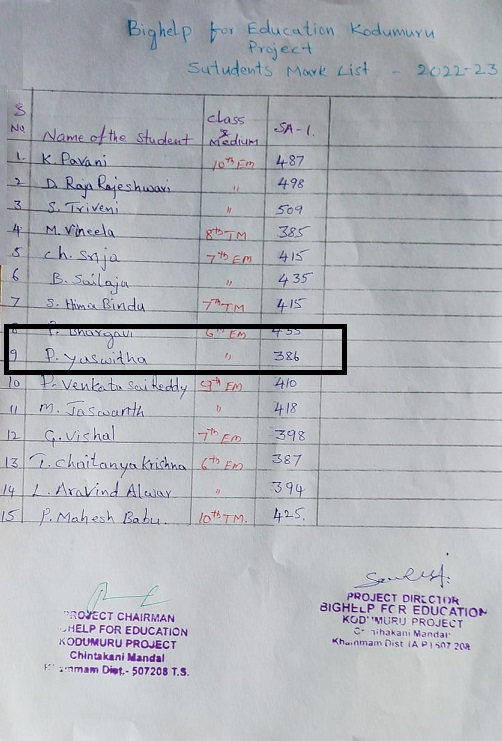 Bighelp for Education Kodumuru
Project
Sutudents Mark List - 2022-23
S No Name of the Student class & Medium SA-1.
1. K. Pavani 10th EM 487
2 D. Raja Rajeshwari " 498
3 S. Triveni " 509
4 M. Vineela 8th TM 385
5 Ch. Srija 7th EM 415
6 B. Sailaja " 435
7 S. Hima Bindu 7th TM 415
8 P. Bhargavi 6th EM 455
9 P. Yaswitha " 386
10 P. Venkata Sai Reddy 9th EM 410
11 M. Jaswanth " 418
12 G. Vishal 7th EM 398
13 T. Chaitanya Krishna 6th EM 387
14 L. Aravind Alwar " 394
15 P. Mahesh Babu. 10th TM. 425.
PROJECT CHAIRMAN
HELP FOR EDUCATION
KODUMURU PROJECT
Chintakani Mandal
Dist.- 507208 T.S.
PROJECT DIRECTOR
BIGHELP FOR EDUCATION
KODUMURU PROJECT
Mandal
Khammam Dist (A P) 507 208